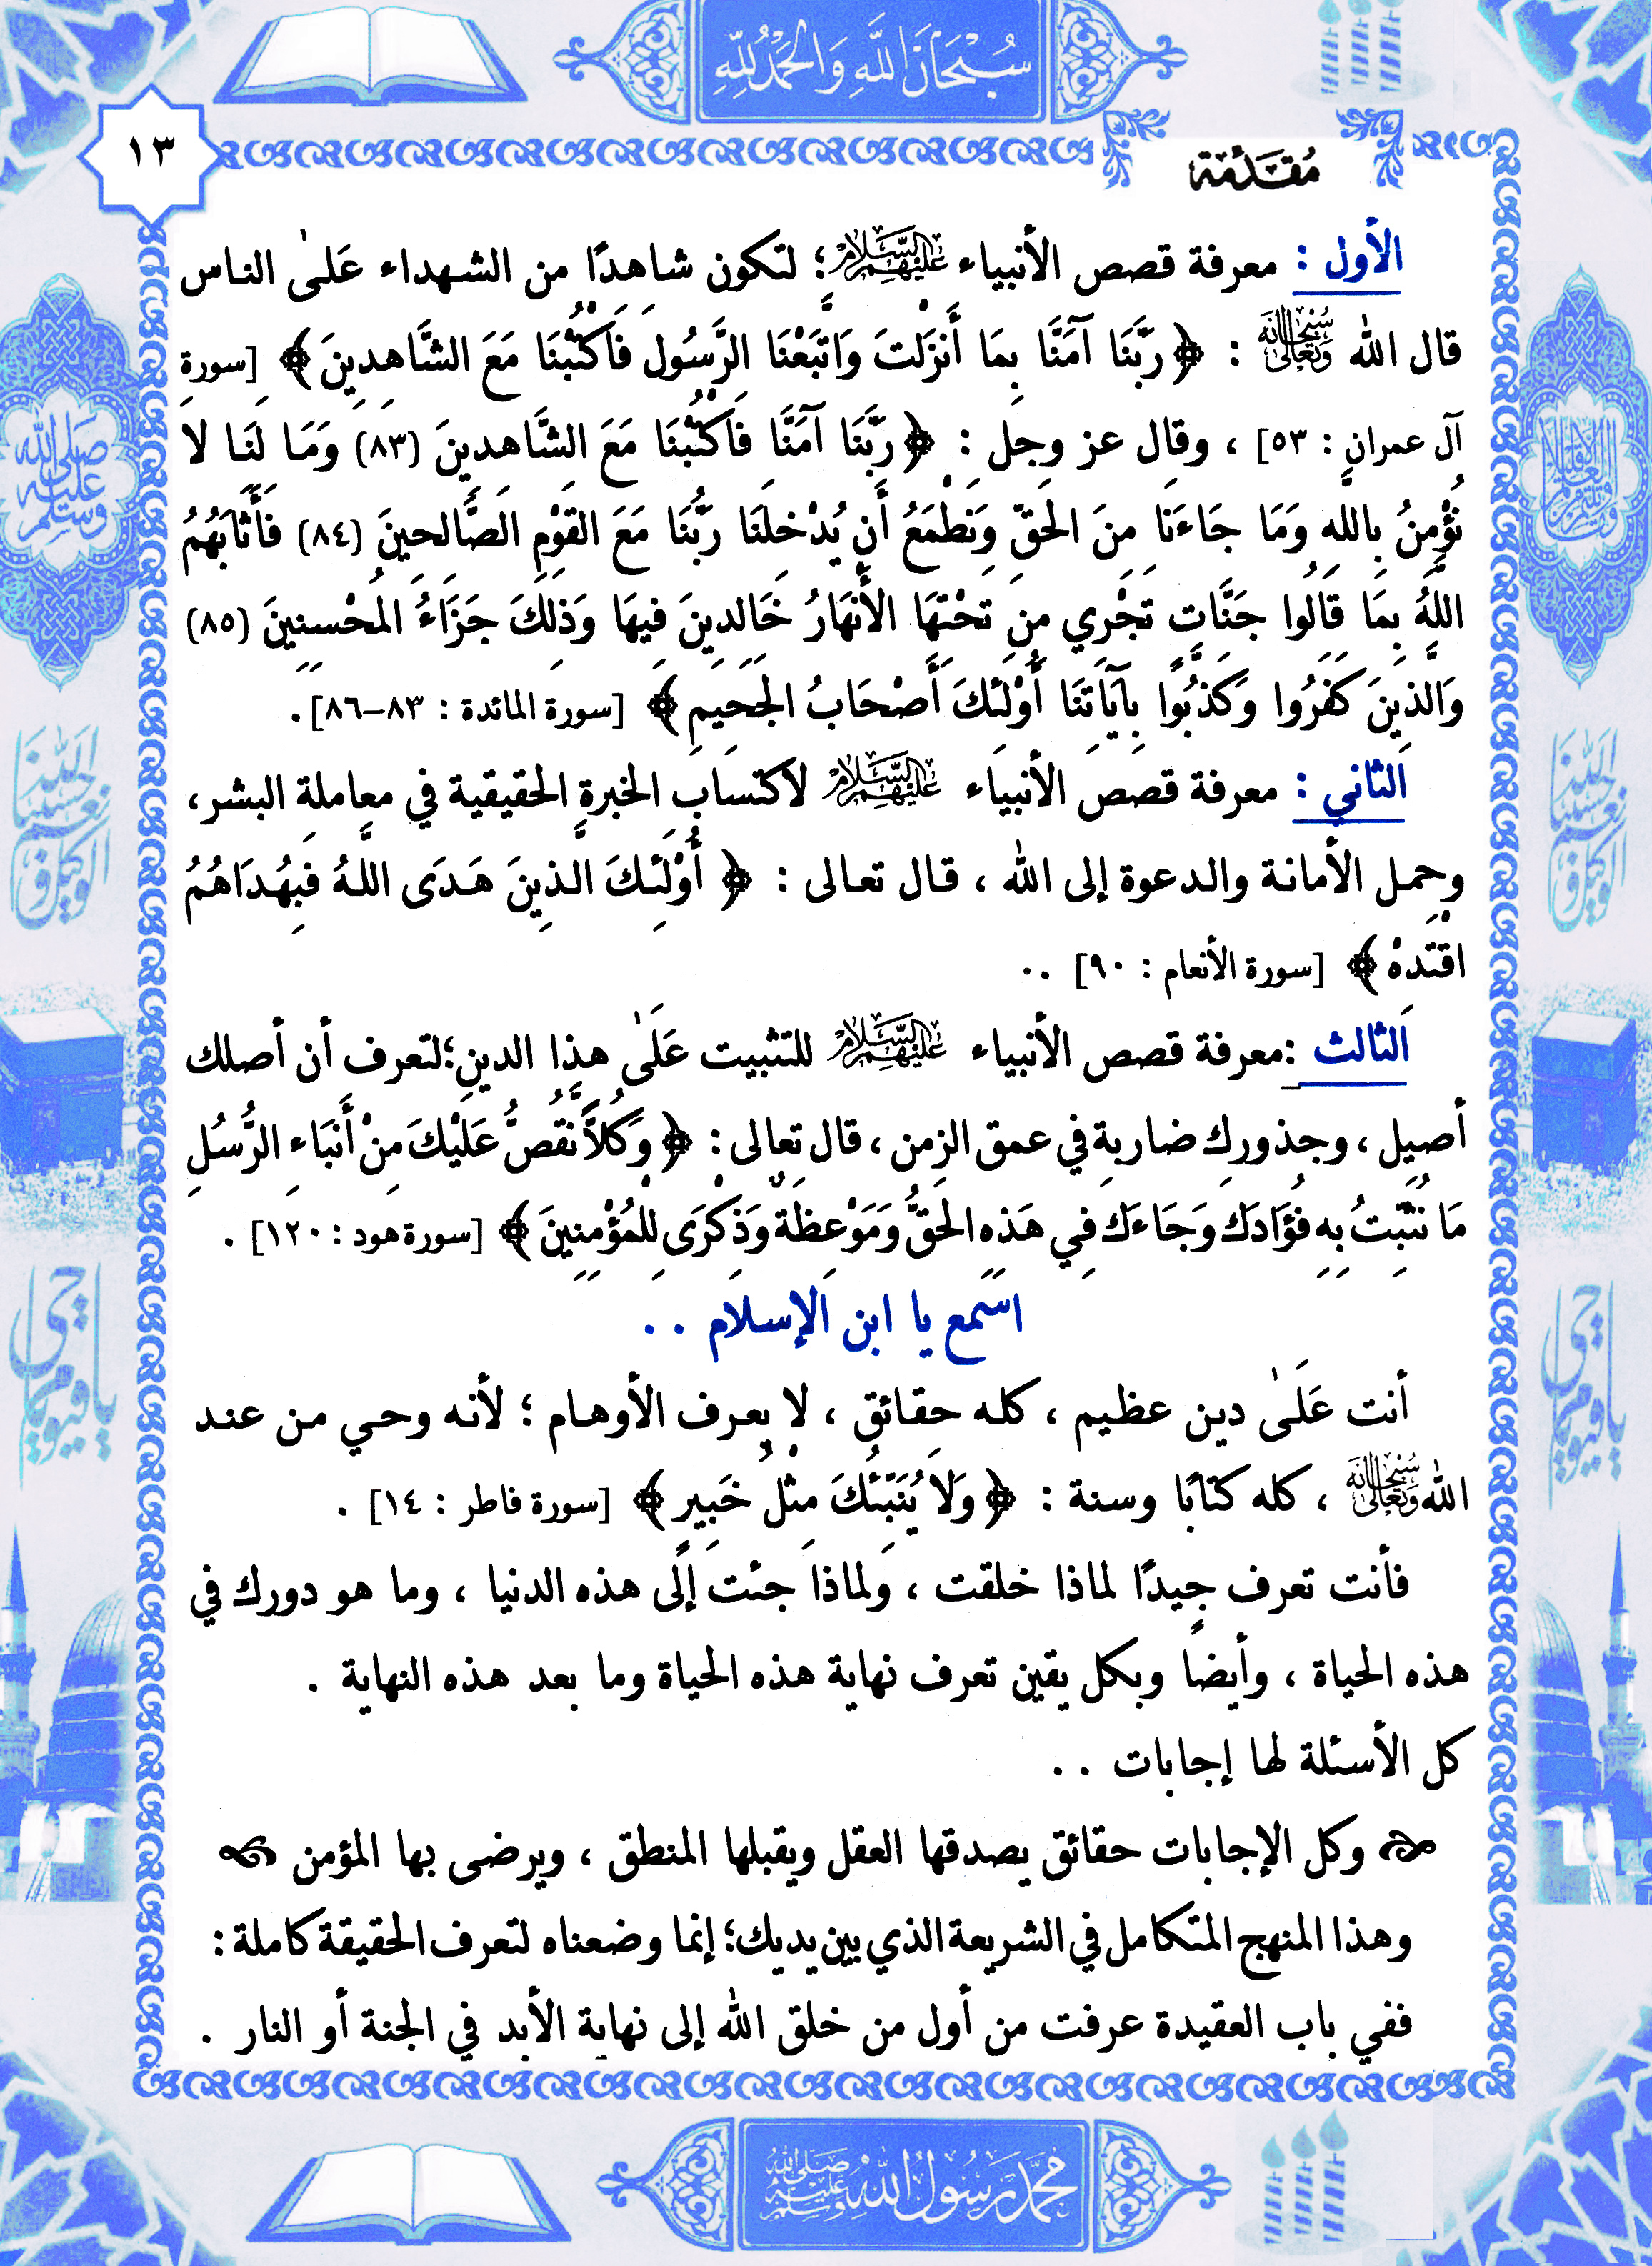 سُبْحَانَ اللَّهِ وَالْحَمْدُ لِلَّهِ
١٣
مُقَدِّمَة
الأول : معرفة قصص الأنبياء عَلَيْهِمُ السَّلَامُ؛ لتكون شاهدًا من الشهداء عَلىٰ الناس
قال الله سُبْحَانَهُ وَتَعَالَىٰ : ﴿ رَبَّنَا آمَنَّا بِمَا أَنزَلْتَ وَاتَّبَعْنَا الرَّسُولَ فَاكْتُبْنَا مَعَ الشَّاهِدِينَ ﴾ [سورة
آل عمران : ٥٣] ، وقال عز وجل : ﴿ رَبَّنَا آمَنَّا فَاكْتُبْنَا مَعَ الشَّاهِدِينَ (٨٣) وَمَا لَنَا لا
نُؤْمِنُ بِاللَّهِ وَمَا جَاءَنَا مِنَ الحَقِّ وَنَطْمَعُ أَن يُدْخِلَنَا رَبُّنَا مَعَ القَوْمِ الصَّالِحِينَ (٨٤) فَأَثَابَهُمُ
اللَّهُ بِمَا قَالُوا جَنَّاتٍ تَجْرِي مِن تَحْتِهَا الأَنْهَارُ خَالِدِينَ فِيهَا وَذَلِكَ جَزَاءُ المُحْسِنِينَ (٨٥)
وَالَّذِينَ كَفَرُوا وَكَذَّبُوا بِآيَاتِنَا أُوْلَئِكَ أَصْحَابُ الجَحِيمِ ﴾ [سورة المائدة : ٨٣–٨٦] .
الثاني : معرفة قصص الأنبياء عَلَيْهِمُ السَّلَامُ لاكتساب الخبرة الحقيقية في معاملة البشر،
وحمل الأمانة والدعوة إلى الله ، قال تعالى : ﴿ أُوْلَئِكَ الَّذِينَ هَدَى اللَّهُ فَبِهُدَاهُمُ
اقْتَدِهْ ﴾ [سورة الأنعام : ٩٠] ..
الثالث :معرفة قصص الأنبياء عَلَيْهِمُ السَّلَامُ للتثبيت عَلَىٰ هذا الدين؛لتعرف أن أصلك
أصيل ، وجذورك ضاربة في عمق الزمن ، قال تعالى : ﴿ وَكُلاًّ نَّقُصُّ عَلَيْكَ مِنْ أَنبَاءِ الرُّسُلِ
مَا نُثَبِّتُ بِهِ فُؤَادَكَ وَجَاءَكَ فِي هَذِهِ الحَقُّ وَمَوْعِظَةٌ وَذِكْرَى لِلْمُؤْمِنِينَ ﴾ [سورة هود : ١٢٠] .
اسمع يا ابن الإسلام . .
أنت عَلَىٰ دين عظيم ، كله حقائق ، لا يعرف الأوهام ؛ لأنه وحي من عند
الله سُبْحَانَهُ وَتَعَالَىٰ ، كله كتابًا وسنة : ﴿ وَلَا يُنَبِّئُكَ مِثْلُ خَبِيرٍ ﴾ [سورة فاطر : ١٤] .
فأنت تعرف جيدًا لماذا خلقت ، ولماذا جئت إلى هذه الدنيا ، وما هو دورك في
هذه الحياة ، وأيضًا وبكل يقين تعرف نهاية هذه الحياة وما بعد هذه النهاية .
كل الأسئلة لها إجابات . .
وكل الإجابات حقائق يصدقها العقل ويقبلها المنطق ، ويرضى بها المؤمن
وهذا المنهج المتكامل في الشريعة الذي بين يديك؛ إنما وضعناه لتعرف الحقيقة كاملة :
ففي باب العقيدة عرفت من أول من خلق الله إلى نهاية الأبد في الجنة أو النار .
صلى الله عليه وسلم
يا حي يا قيوم
يا حي يا قيوم
مُحَمَّدٌ رَسُولُ اللَّهِ صلى الله عليه وسلم